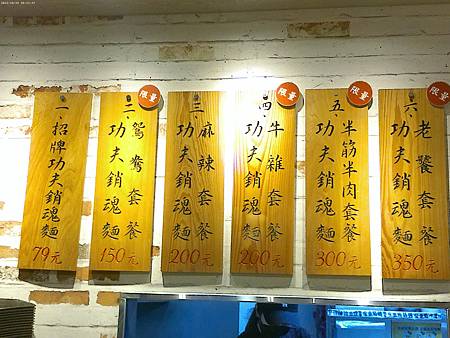 一、招牌功夫銷魂麵
79元
限量
二、鴛鴦套餐
功夫銷魂麵
150元
三、麻辣套餐
功夫銷魂麵
200元
限量
四、牛雜套餐
功夫銷魂麵
200元
限量
五、半筋半肉套餐
功夫銷魂麵
300元
限量
六、老饕套餐
功夫銷魂麵
350元